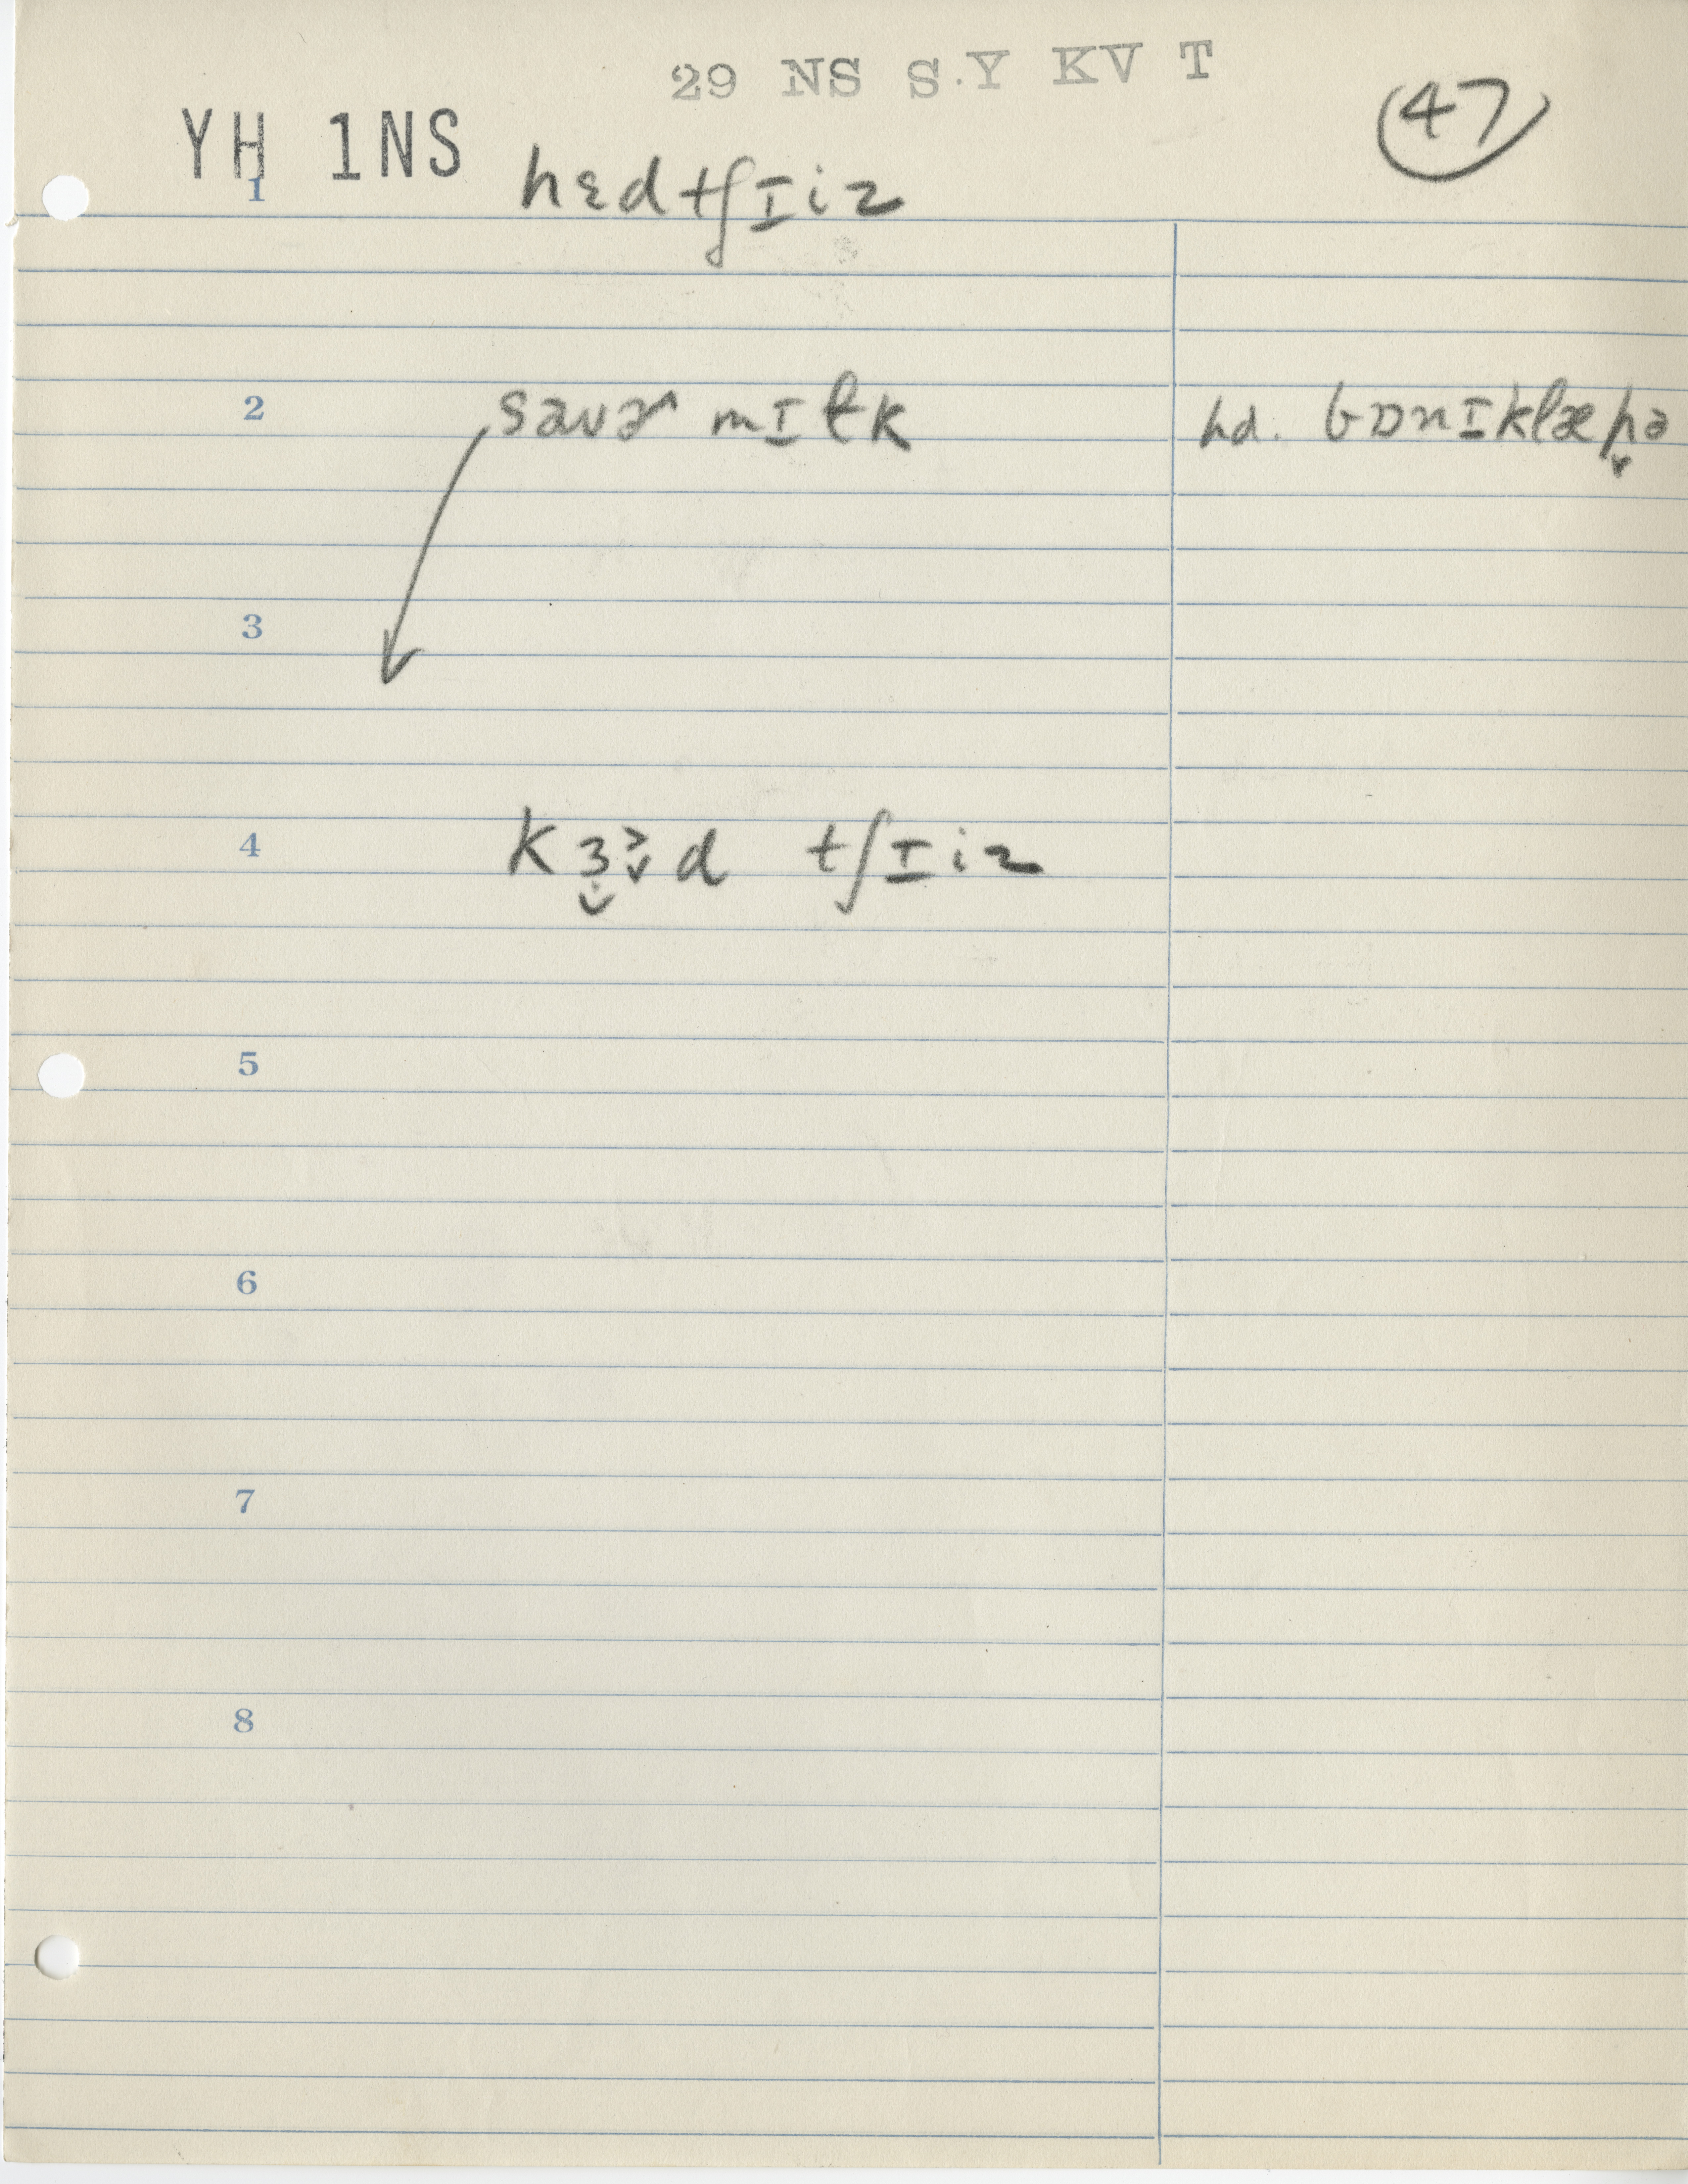 29 NS S.Y KV T
47
YH 1NS
1 hɛdtʃɪiz
2 sauɚ mɪɫk hd. bɒnɪklæp̬ə
3
4 kɜ̬ɚ̬d tʃɪiz
5
6
7
8